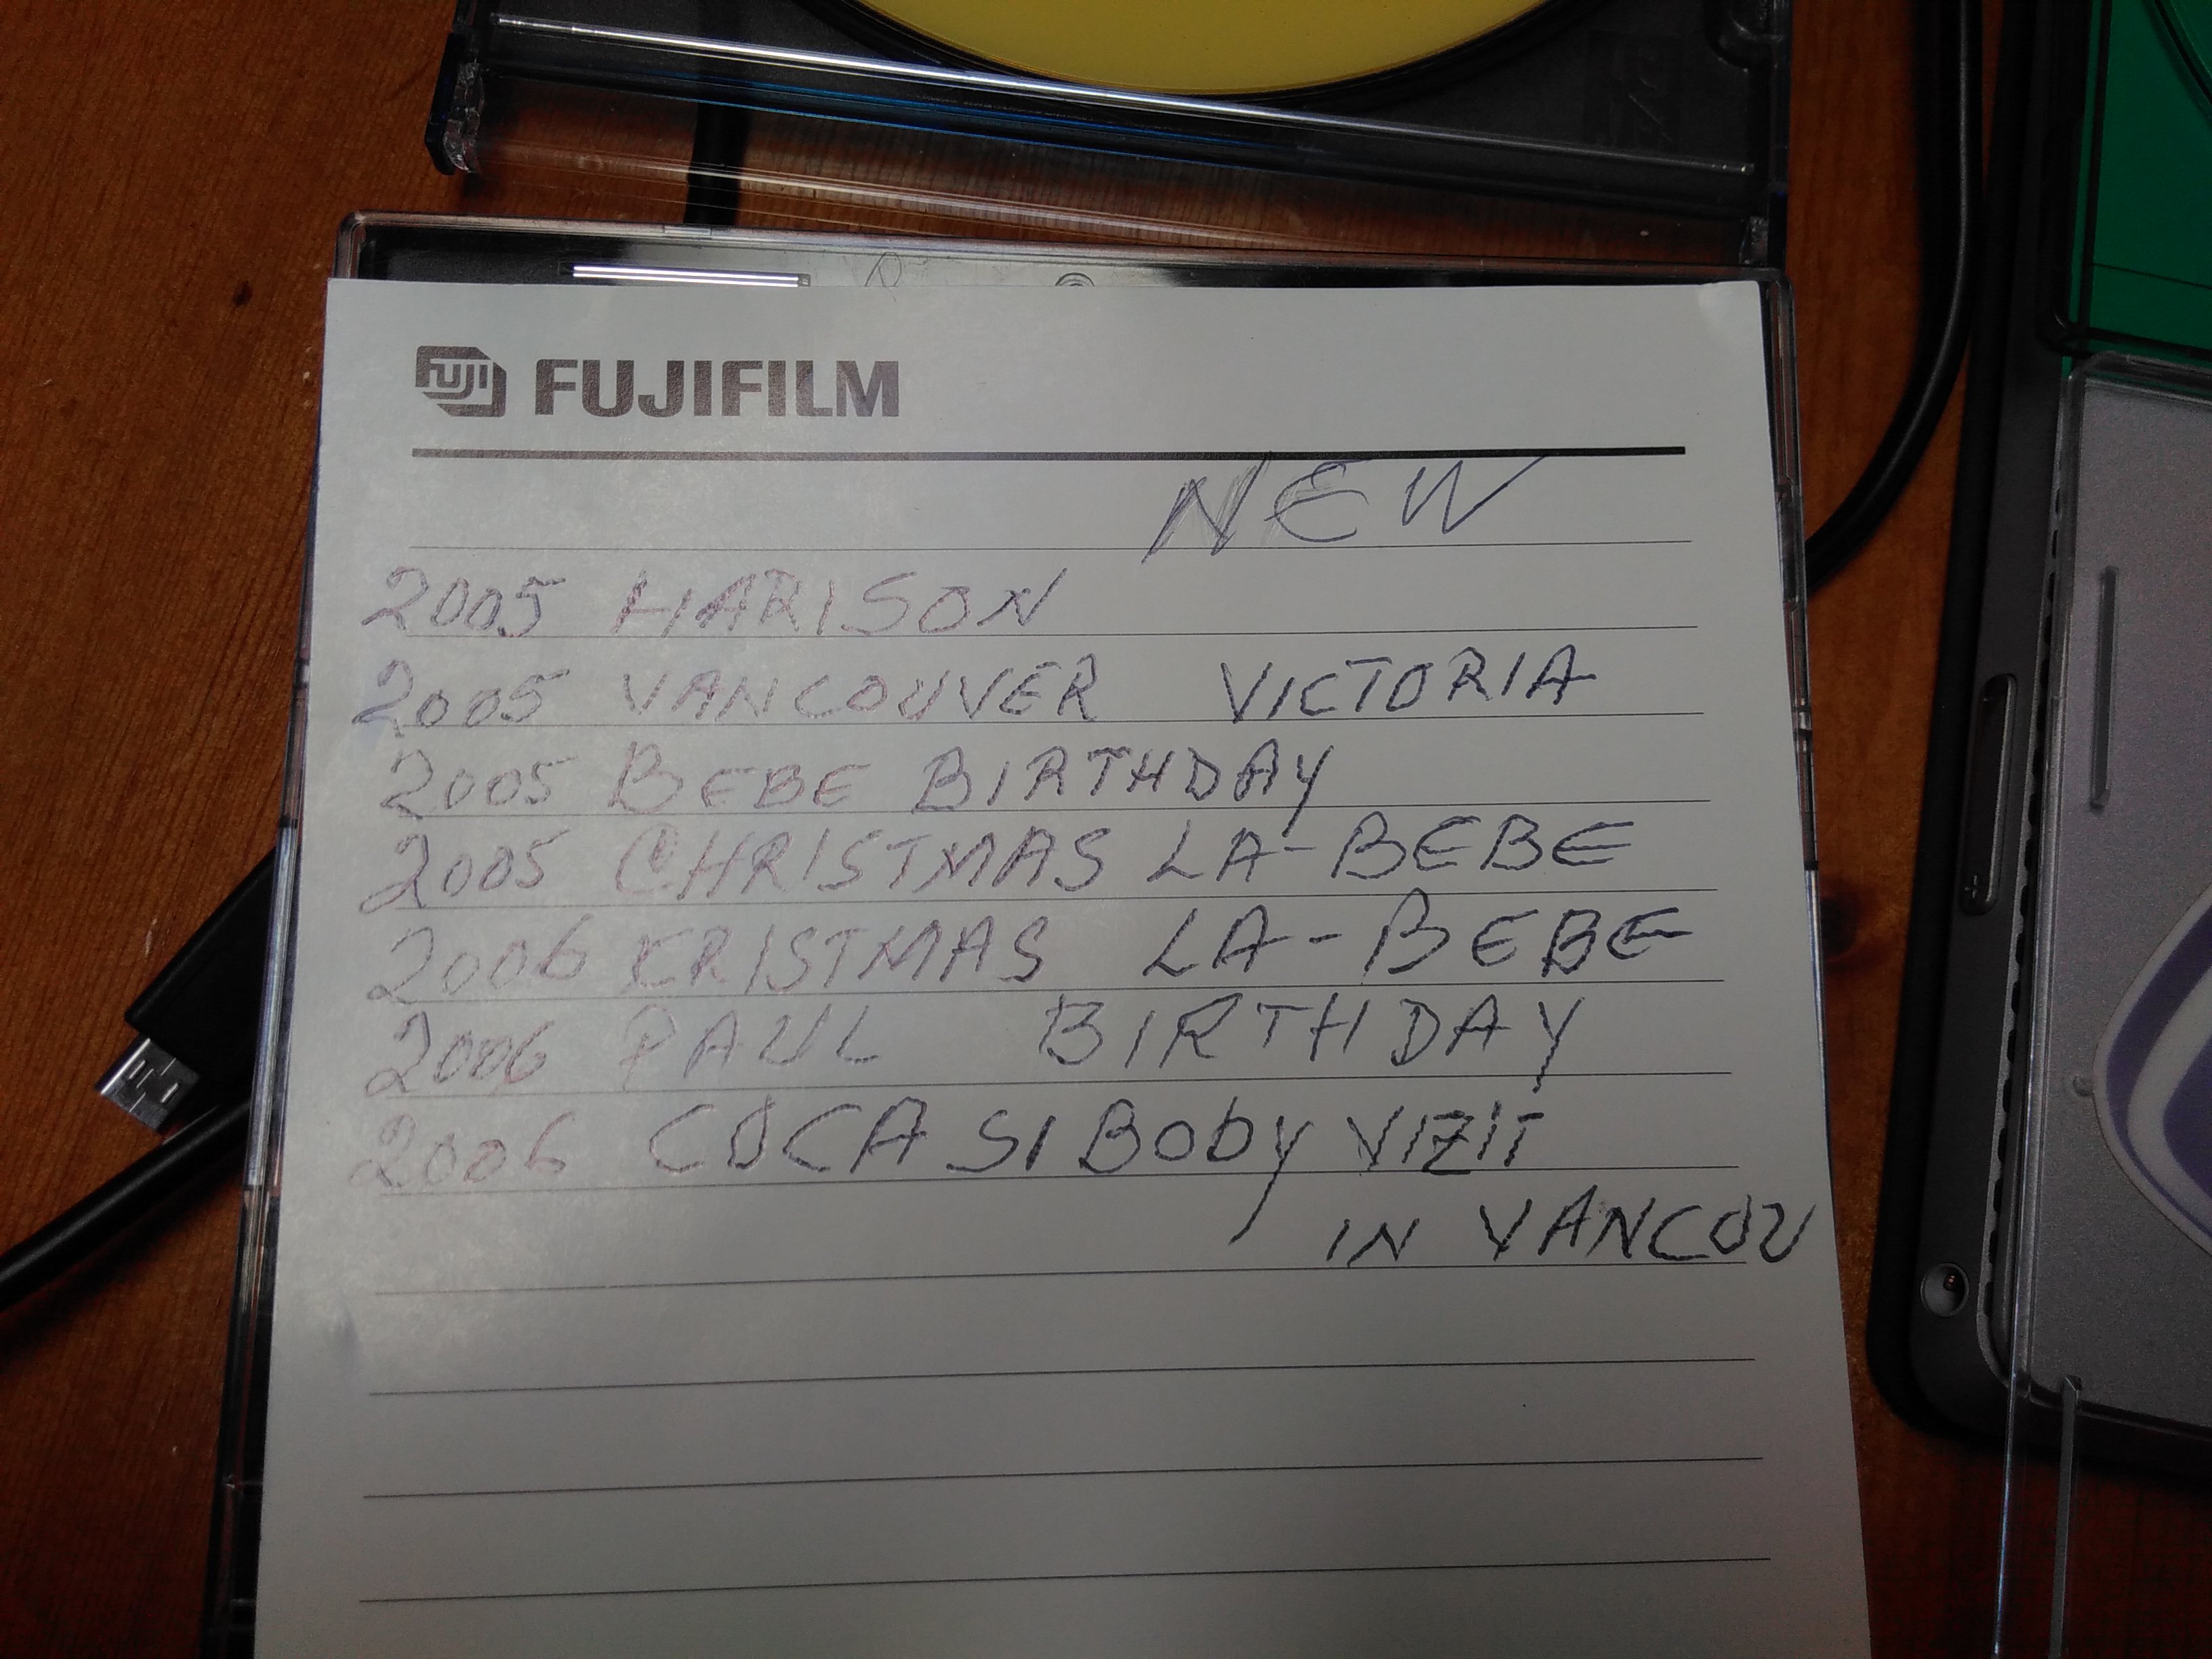 FUJI FUJIFILM
NEW
2005 HARISON
2005 VANCOUVER VICTORIA
2005 BEBE BIRTHDAY
2005 CHRISTMAS LA-BEBE
2006 CRISTMAS LA-BEBE
2006 PAUL BIRTHDAY
2006 COCA SI BOBY VIZIT
IN VANCOU